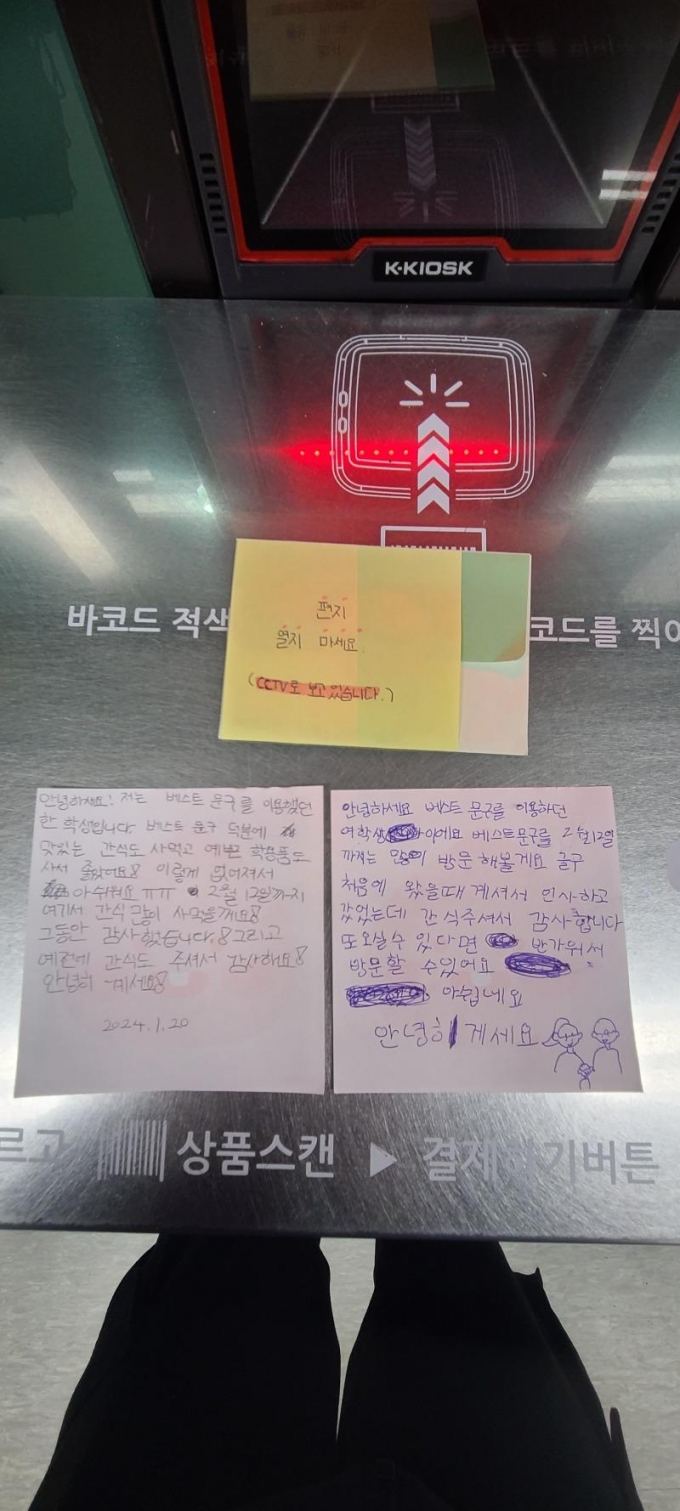 K·KIOSK
바코드 적색
코드를 찍어
편지
열지 마세요.
(CCTV로 보고 있습니다.)
안녕하세요! 저는 베스트 문구를 이용했던
한 학생입니다. 베스트 문구 덕분에
맛있는 간식도 사먹고 예쁜 학용품도
사서 좋았어요! 이렇게 없어져서
아쉬워요 ㅠㅠ 2월 12일까지
여기서 간식 많이 사먹을게요!
그동안 감사했습니다.! 그리고
예전에 간식도 주셔서 감사해요!
안녕히 계세요!
2024.1.20
안녕하세요 베스트 문구를 이용하던
여학생 이에요 베스트문구를 2월12일
까지는 많이 방문 해볼게요 글구
처음에 왔을때 계셔서 인사하고
갔었는데 간식주셔서 감사합니다
또오실수 있다면 반가워서
방문할 수있어요
아쉽네요
안녕히 게세요
르고
상품스캔 ▶ 결제하기버튼